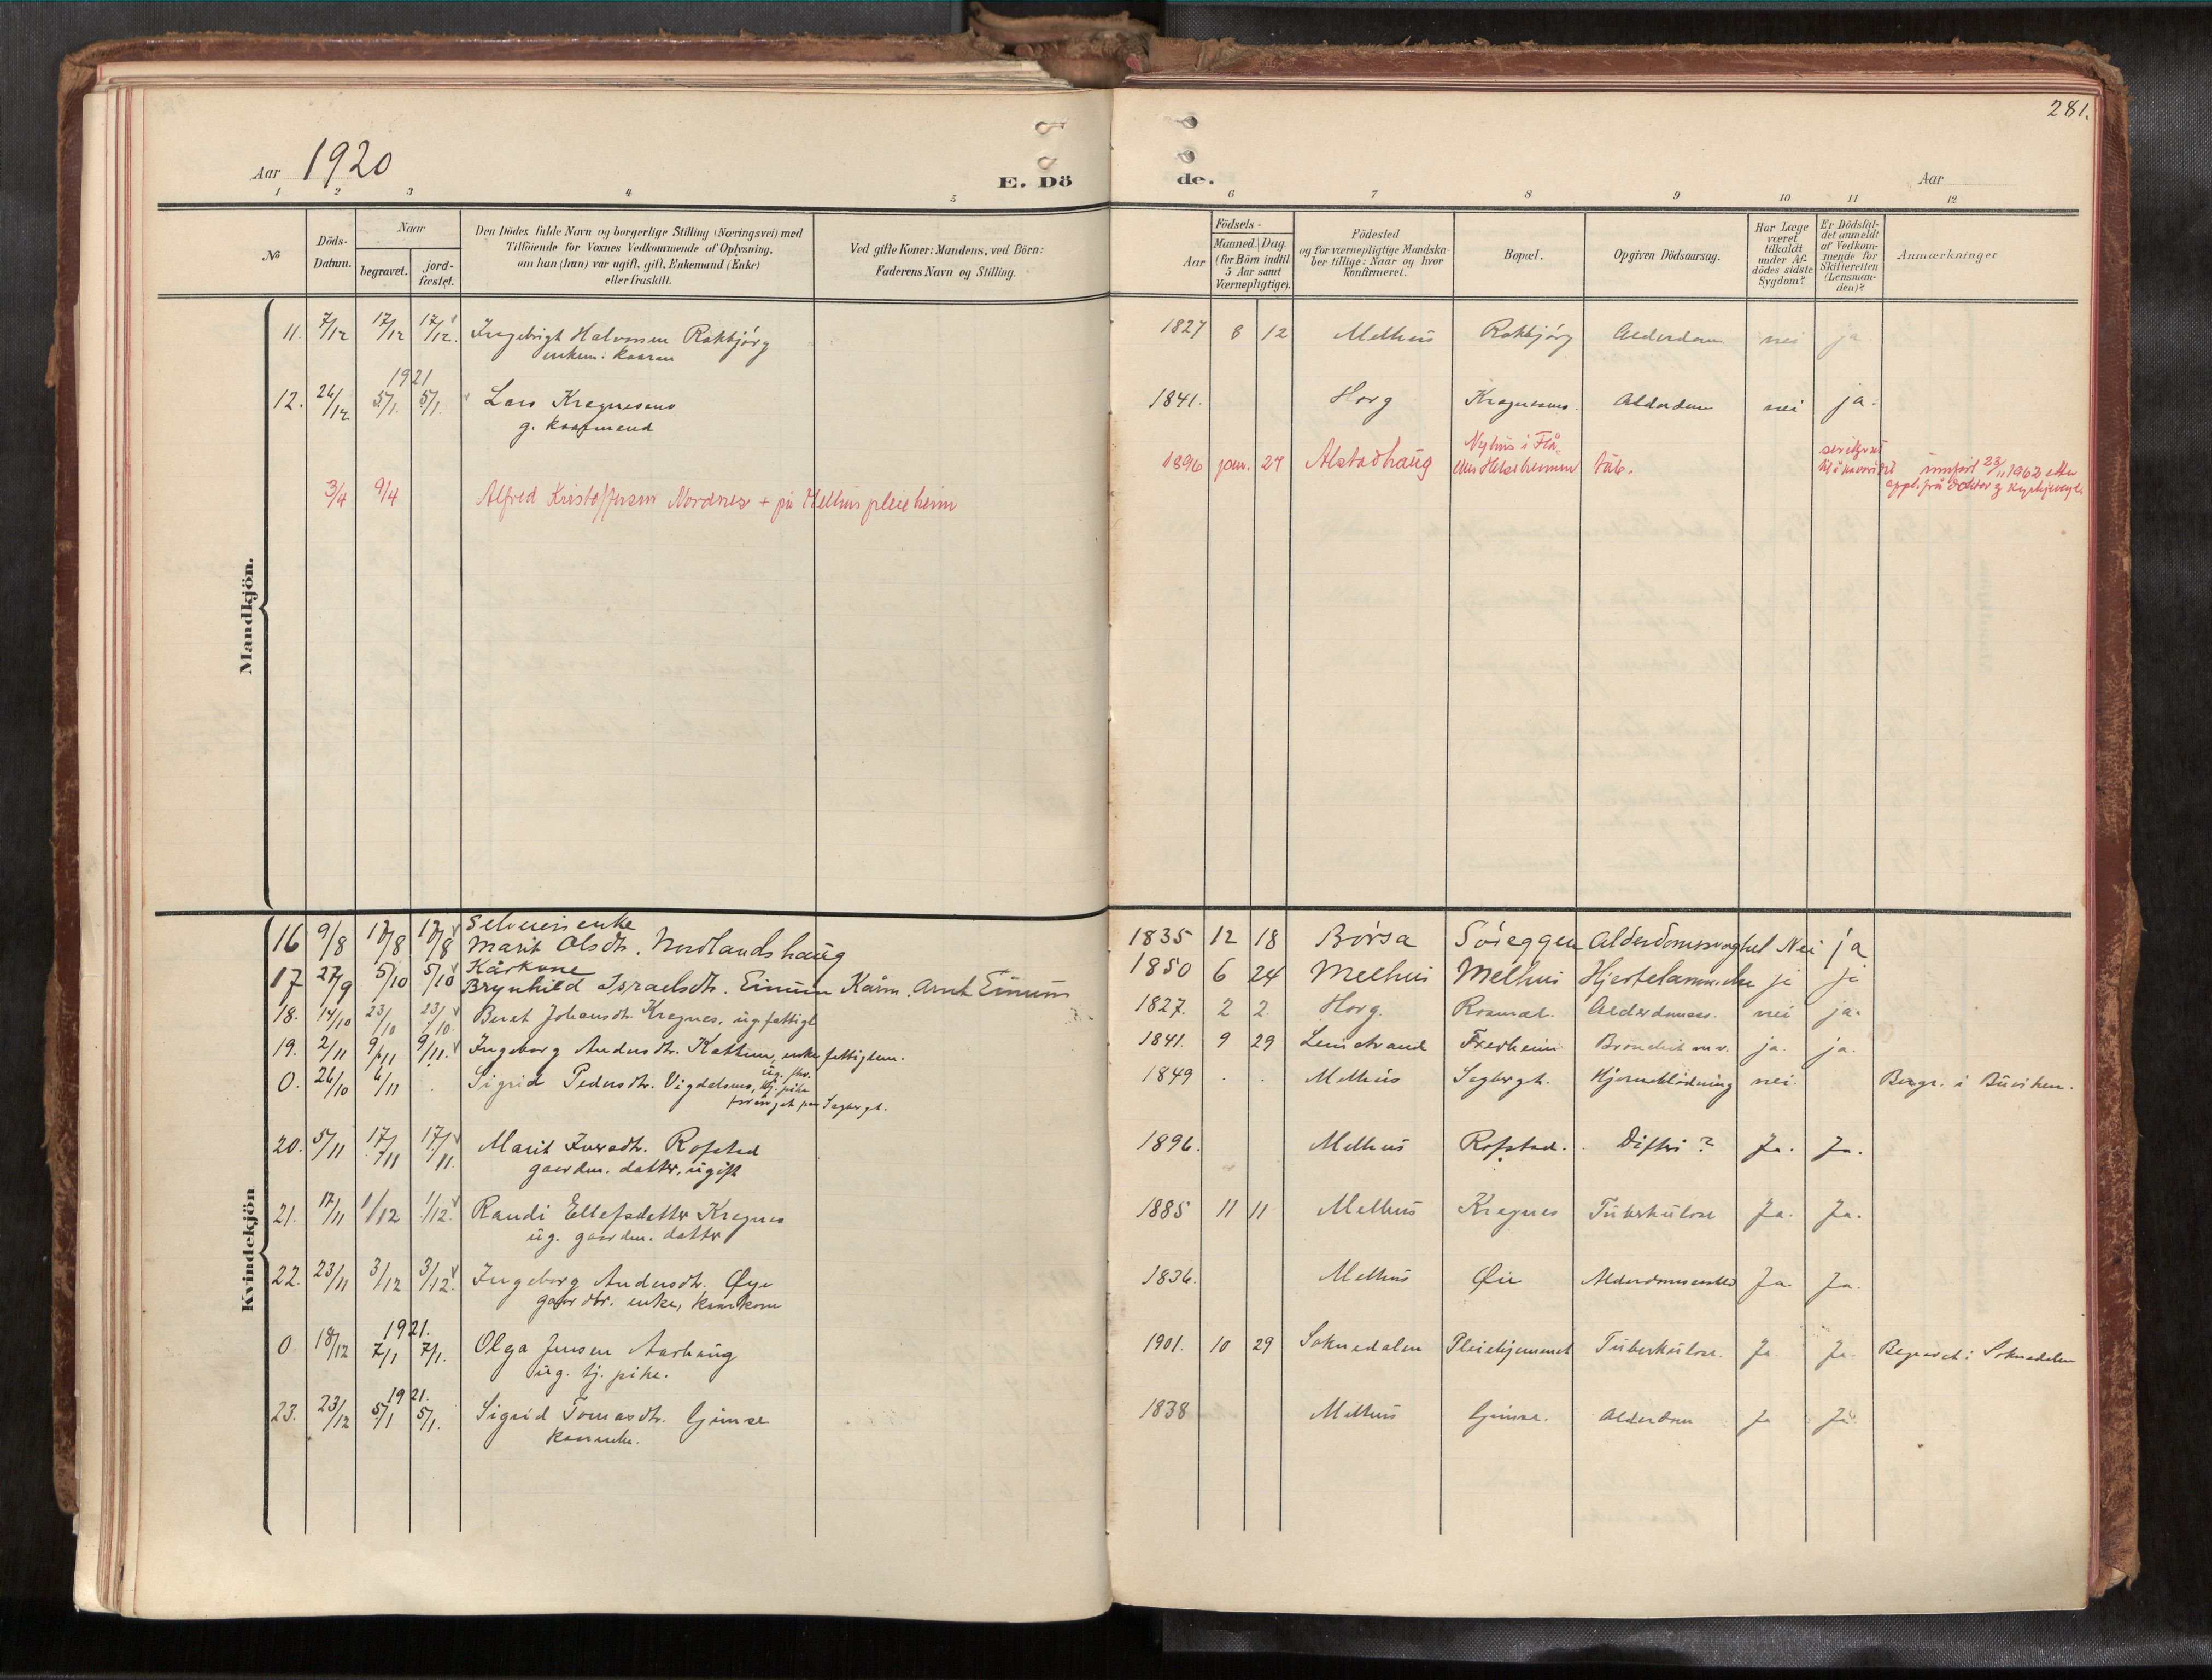 281.
Aar 1920
E. Döde.
Aar
1 2 3 4 5 6 7 8 9 10 11 12
№
Döds-Datum.
Naar
begravet.
jord-fæstet.
Den Dödes fulde Navn og borgerlige Stilling (Næringsvei) med
Tilföiende for Voxnes Vedkommende af Oplysning,
om han (hun) var ugift, gift, Enkemand (Enke)
eller fraskilt.
Ved gifte Koner: Mandens, ved Börn:
Faderens Navn og Stilling.
Aar
Födsels-
Maaned. Dag.
(for Börn indtil
5 Aar samt
Værnepligtige).
Födested
og for værnepligtige Mandska-
ber tillige: Naar og hvor
konfirmeret.
Bopæl.
Opgiven Dödsaarsag.
Har Læge
været
tilkaldt
under Af-
dödes sidste
Sygdom?
Er Dödsfal-
det anmeldt
af Vedkom-
mende for
Skifteretten
(Lensman-
den)?
Anmærkninger
Mandkjön.
11. 7/12 17/12 17/12. Ingebrigt Halvorsen Rokbjörg 1827 8 12 Melhus Rokbjörg Alderdom nei ja
enkem. kaarm
1921
12. 26/12 5/1. 5/1. Lars Kregnesmo 1841. Horg Kregnesmo. Alderdom nei ja.
g. kaarmand
3/4 9/4 Alfred Kristoffersen Nordnes + på Melhus pleieheim 1896 jan. 24 Alstadhaug Nyhus i Flå tub.
innført 23/11 1962 etter
Kvindekjön
Selveierenke
16 9/8 17/8 17/8 Marit Olsdtr. Nordlandshaug 1835 12 18 Börsa Söreggen Alderdomssvaghet Nei ja
Kårkone
17 27/9 5/10 5/10 Brynhild Israelsdtr. Eimum Kårm. Arnt Eimum 1850 6 24 Melhus Melhus ja ja
18. 14/10 23/10 23/10. Beret Johansdtr. Kregnes, ug. fattigl 1827. 2 2. Horg. nei ja.
19. 2/11 9/11 9/11. Ingeborg Andersdtr. Kattem, enke fattiglem. 1841. 9 29 Leinstrand ja. ja.
0. 26/10 6/11 Sigrid Pedersdtr. Vigdalsmo, ug. tj. pike 1849 Melhus Hjerneblödning nei. Begr. i Buviken.
20. 5/11 17/11 17/11. Marit Iversdtr. Rofstad 1896. Melhus Rofstad. Difteri? Ja. Ja.
gaardm. datter, ugift
21. 17/11 1/12 1/12. Randi Ellefsdatter Kregnes 1885 11 11 Melhus Kregnes Tuberkulose Ja. Ja.
ug. gaardm. datter
22. 23/11 3/12 3/12. Ingeborg Andersdtr. Øye 1836. Melhus Øie Ja. Ja.
gaardbr. enke, kaarkone
1921.
0 18/12 7/1 7/1. Olga Jensen Aarhaug 1901. 10 29 Soknedalen Pleiehjemmet Tuberkulose. Ja. Ja. Begravet i Soknedalen
ug. tj. pike.
1921.
23. 23/12 5/1 5/1. Sigrid Tomasdtr. Gimse 1838 Melhus Gimse. Alderdom Ja Ja.
kaarenke.